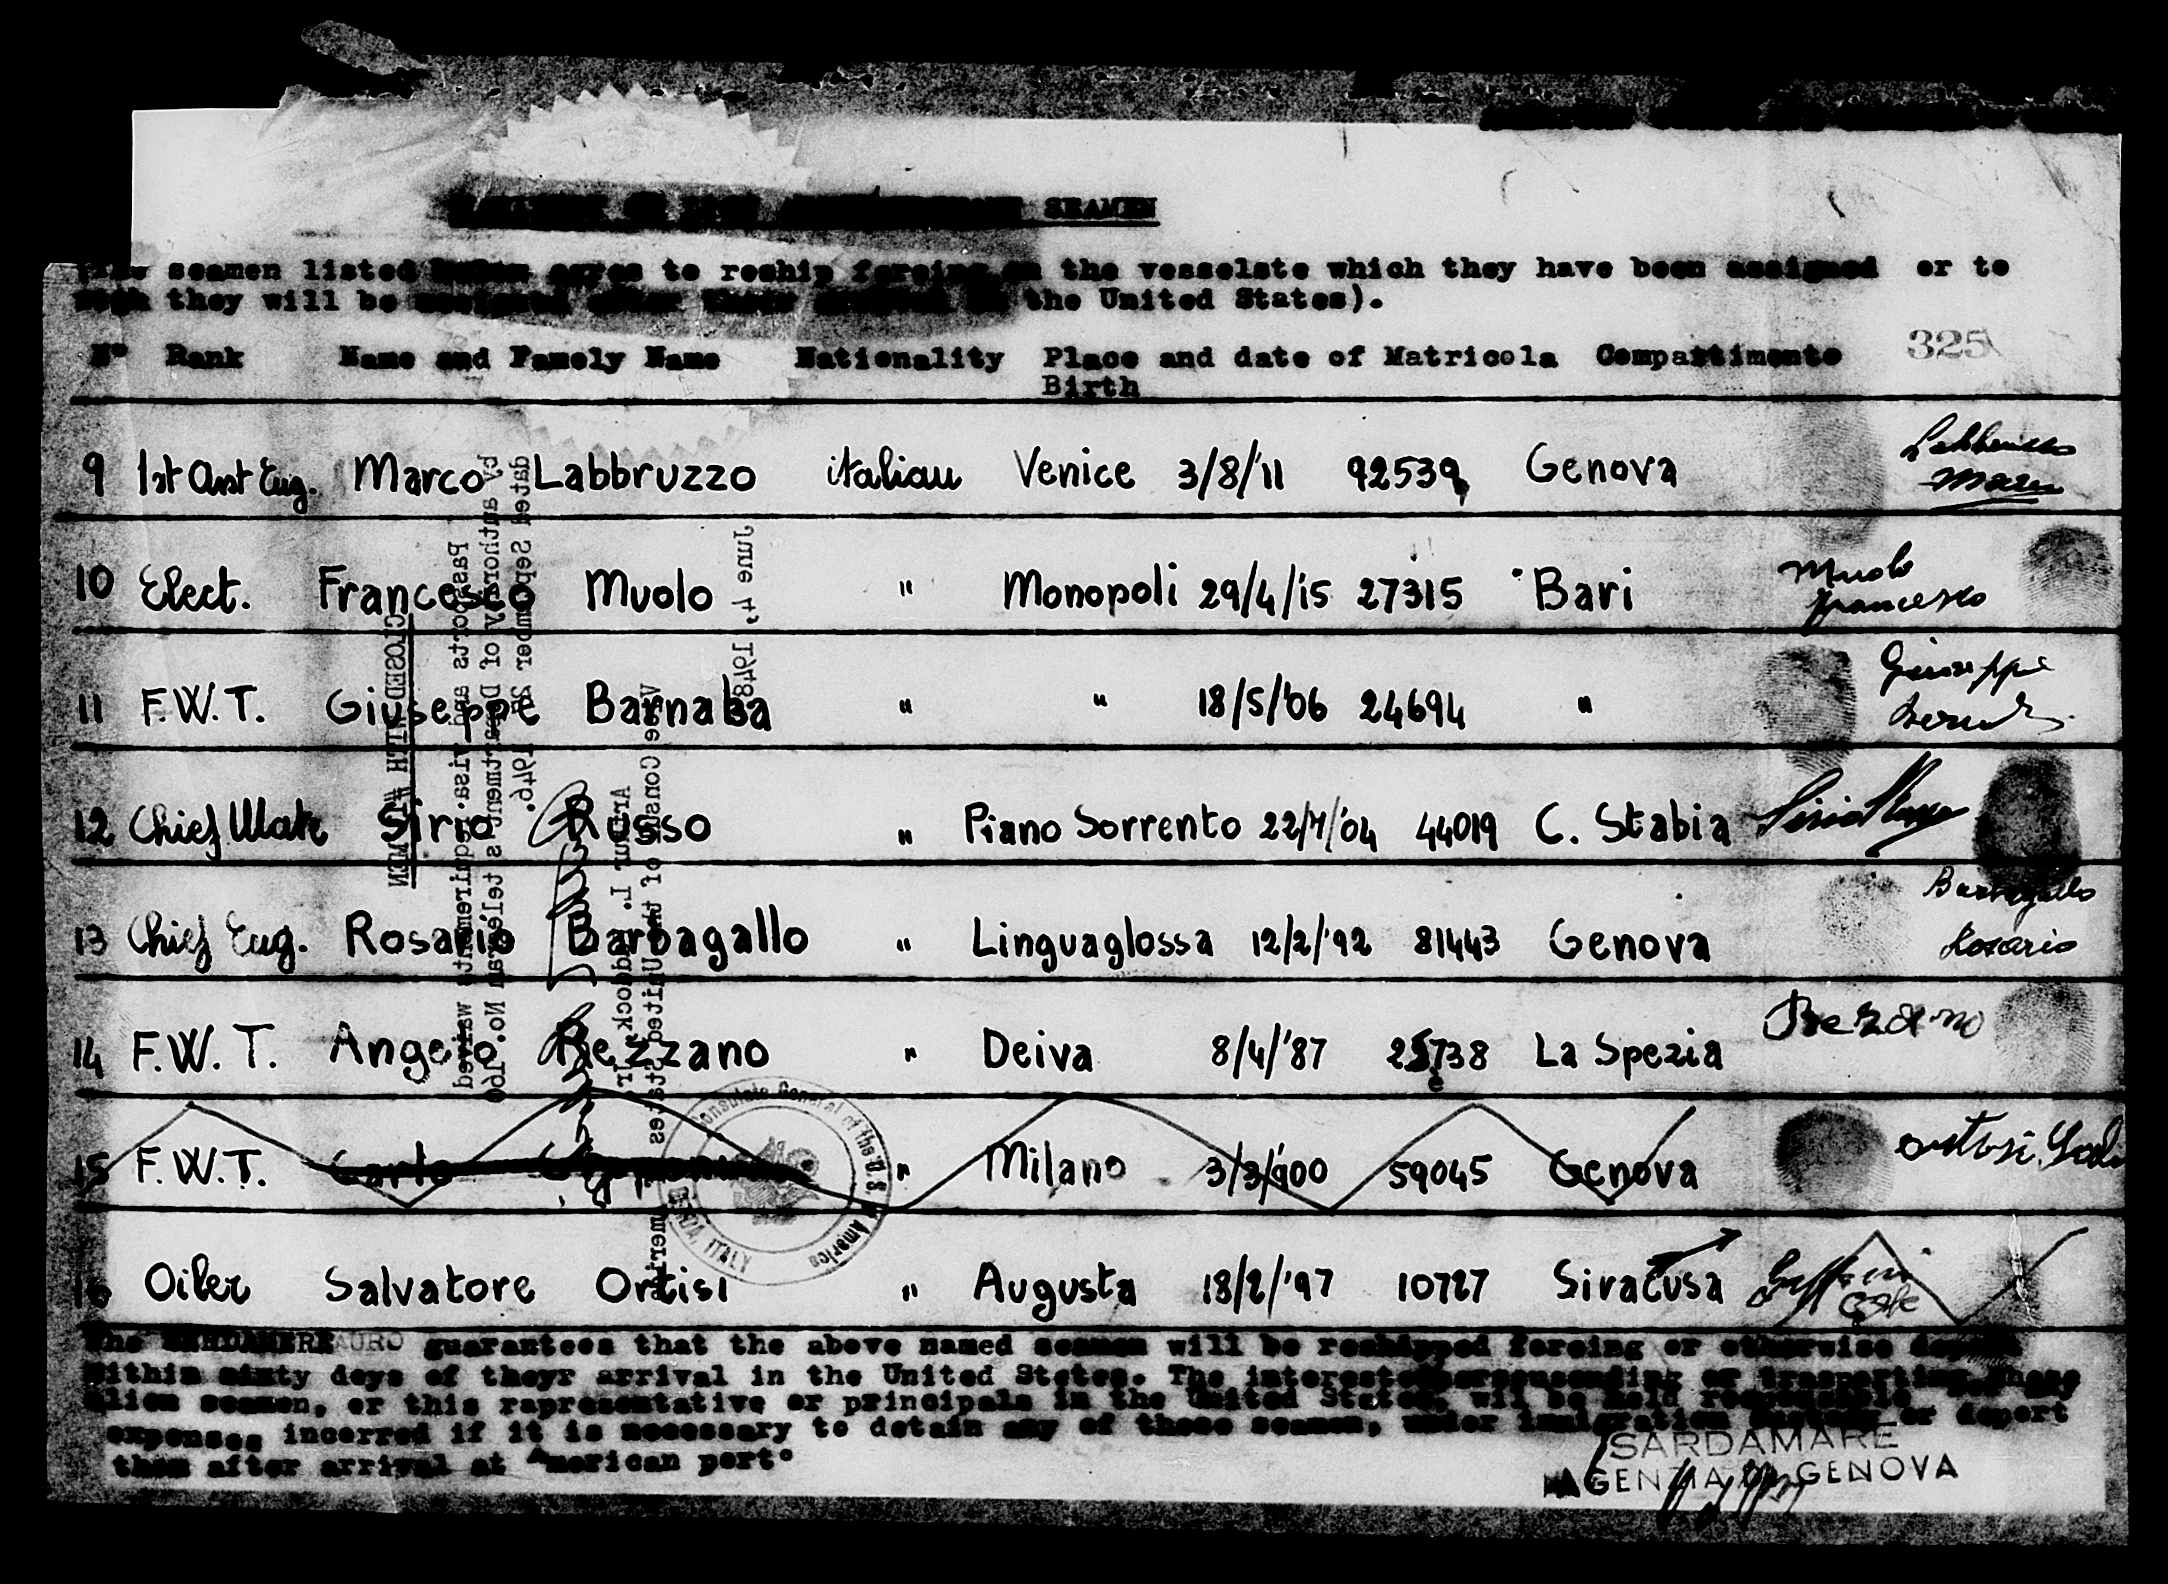 SEAMEN
seamen listed below agree to reship foreing on the vesselste which they have been assigned or to
they will be assigned after their arrival in the United States).
325
N° Rank Name and Famely Name Nationality Place and date of Matricola Compartimento
Birth
9 1st Asst Eng. Marco Labbruzzo italian Venice 3/8/'11 92539 Genova
10 Elect. Francesco Muolo " Monopoli 29/4/'15 27315 Bari Muolo Francesco
11 F.W.T. Giuseppe Barnaba " " 18/5/'06 24694 " Giuseppe
12 Chief Mate Sirio Russo " Piano Sorrento 22/7/'04 44019 C. Stabia
13 Chief Eng. Rosario Barbagallo " Linguaglossa 12/2/'92 81443 Genova Barbagallo Rosario
14 F.W.T. Angelo Rezzano " Deiva 8/4/'87 25738 La Spezia
15 F.W.T. Carlo " Milano 3/3/'900 59045 Genova
16 Oiler Salvatore Ortisi " Augusta 18/2/'97 10727 Siracusa
The SARDAMERE guarantees that the above named seamen will be reshipped foreing or otherwise
within sixty deys of theyr arrival in the United States. The
alien seamen, or this rapresentative or principals in the United States, will be held
expenses incorred if it is necessary to detain any of these seamen, under immigration or deport
them after arrival at American port°
SARDAMARE
AGENZIA DI GENOVA
CLOSED WITH #1 MEN
Passports and visa requirements waived
by authority of Department's telegram No. 160
dated September 25, 1946.
June 4, 1948
Arthur L. Paddock Jr
Vice Consul of the United States America
Consulate General of the U.S. of America
GENOA, ITALY